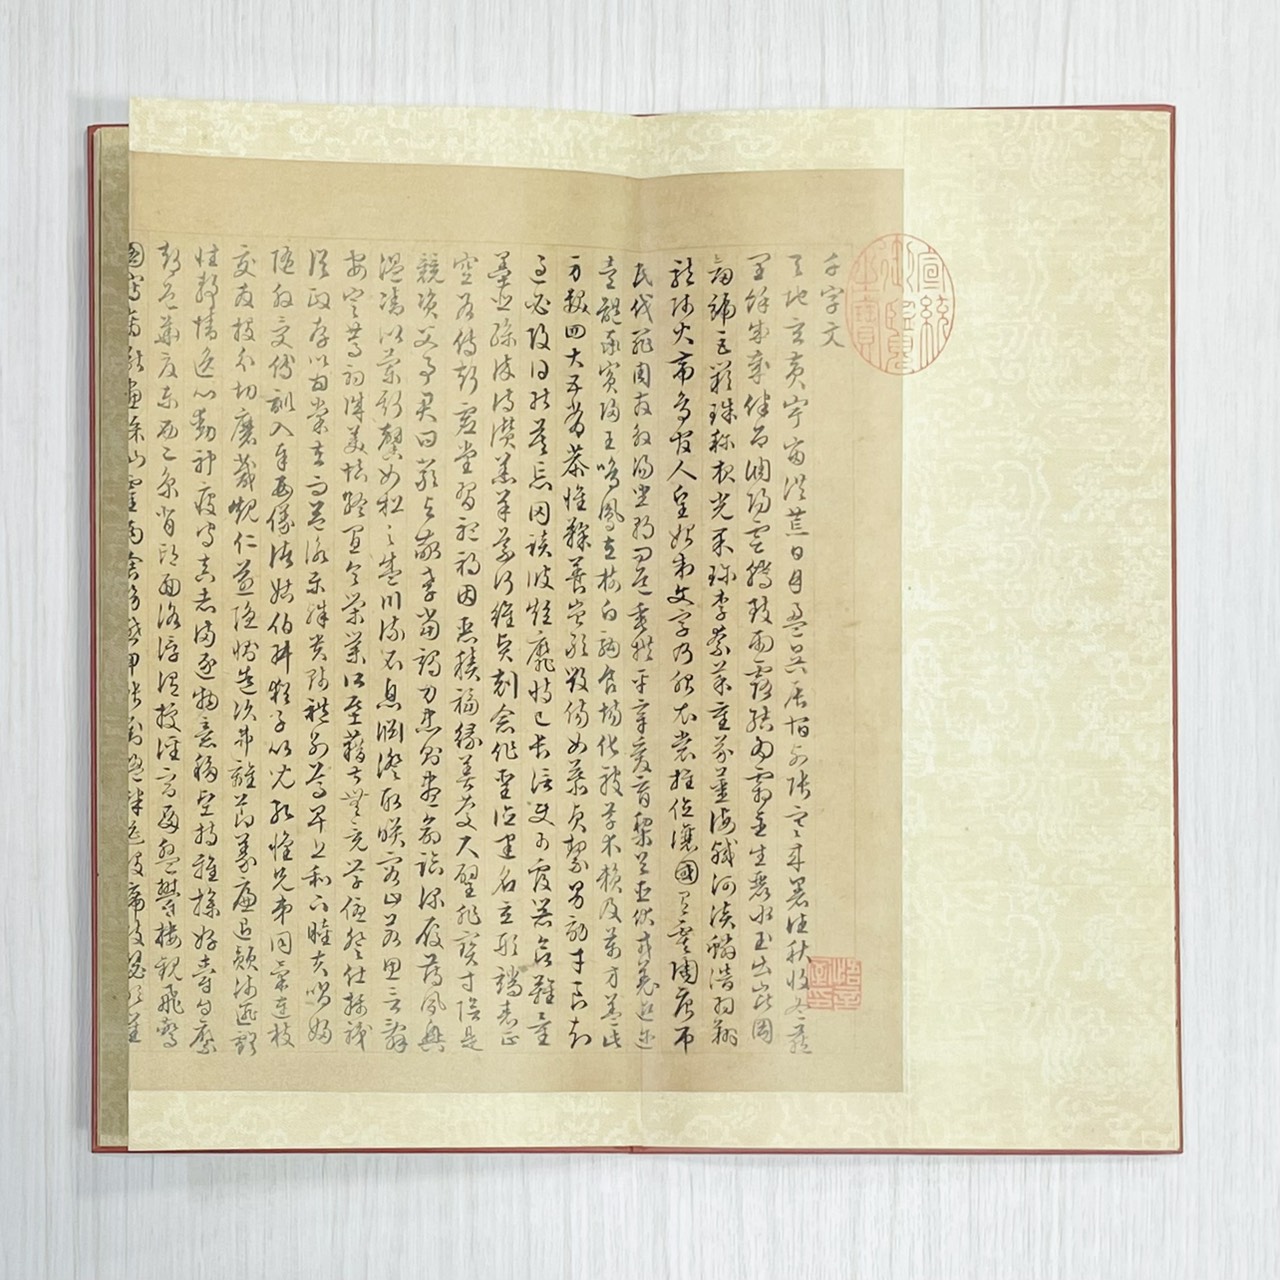 千字文
天地玄黃宇宙洪荒日月盈昃辰宿列張寒來暑往秋收冬藏
閏餘成歲律呂調陽雲騰致雨露結為霜金生麗水玉出崑岡
劍號巨闕珠稱夜光果珍李柰菜重芥薑海鹹河淡鱗潛羽翔
龍師火帝鳥官人皇始制文字乃服衣裳推位讓國有虞陶唐弔
民伐罪周發殷湯坐朝問道垂拱平章愛育黎首臣伏戎羌遐邇
壹體率賓歸王鳴鳳在樹白駒食場化被草木賴及萬方蓋此
身髮四大五常恭惟鞠養豈敢毀傷女慕貞潔男效才良知
過必改得能莫忘罔談彼短靡恃己長信使可覆器欲難量
墨悲絲染詩讚羔羊景行維賢剋念作聖德建名立形端表正
空谷傳聲虛堂習聽禍因惡積福緣善慶尺璧非寶寸陰是
競資父事君曰嚴與敬孝當竭力忠則盡命臨深履薄夙興
溫凊似蘭斯馨如松之盛川流不息淵澄取映容止若思言辭
安定篤初誠美慎終宜令榮業所基藉甚無竟學優登仕攝職
從政存以甘棠去而益詠樂殊貴賤禮別尊卑上和下睦夫唱婦
隨外受傅訓入奉母儀諸姑伯叔猶子比兒孔懷兄弟同氣連枝
交友投分切磨箴規仁慈隱惻造次弗離節義廉退顛沛匪虧
性靜情逸心動神疲守真志滿逐物意移堅持雅操好爵自縻
都邑華夏東西二京背邙面洛浮渭據涇宮殿盤鬱樓觀飛驚
圖寫禽獸畫彩仙靈丙舍傍啟甲帳對楹肆筵設席鼓瑟吹笙
宣統御覽之寶